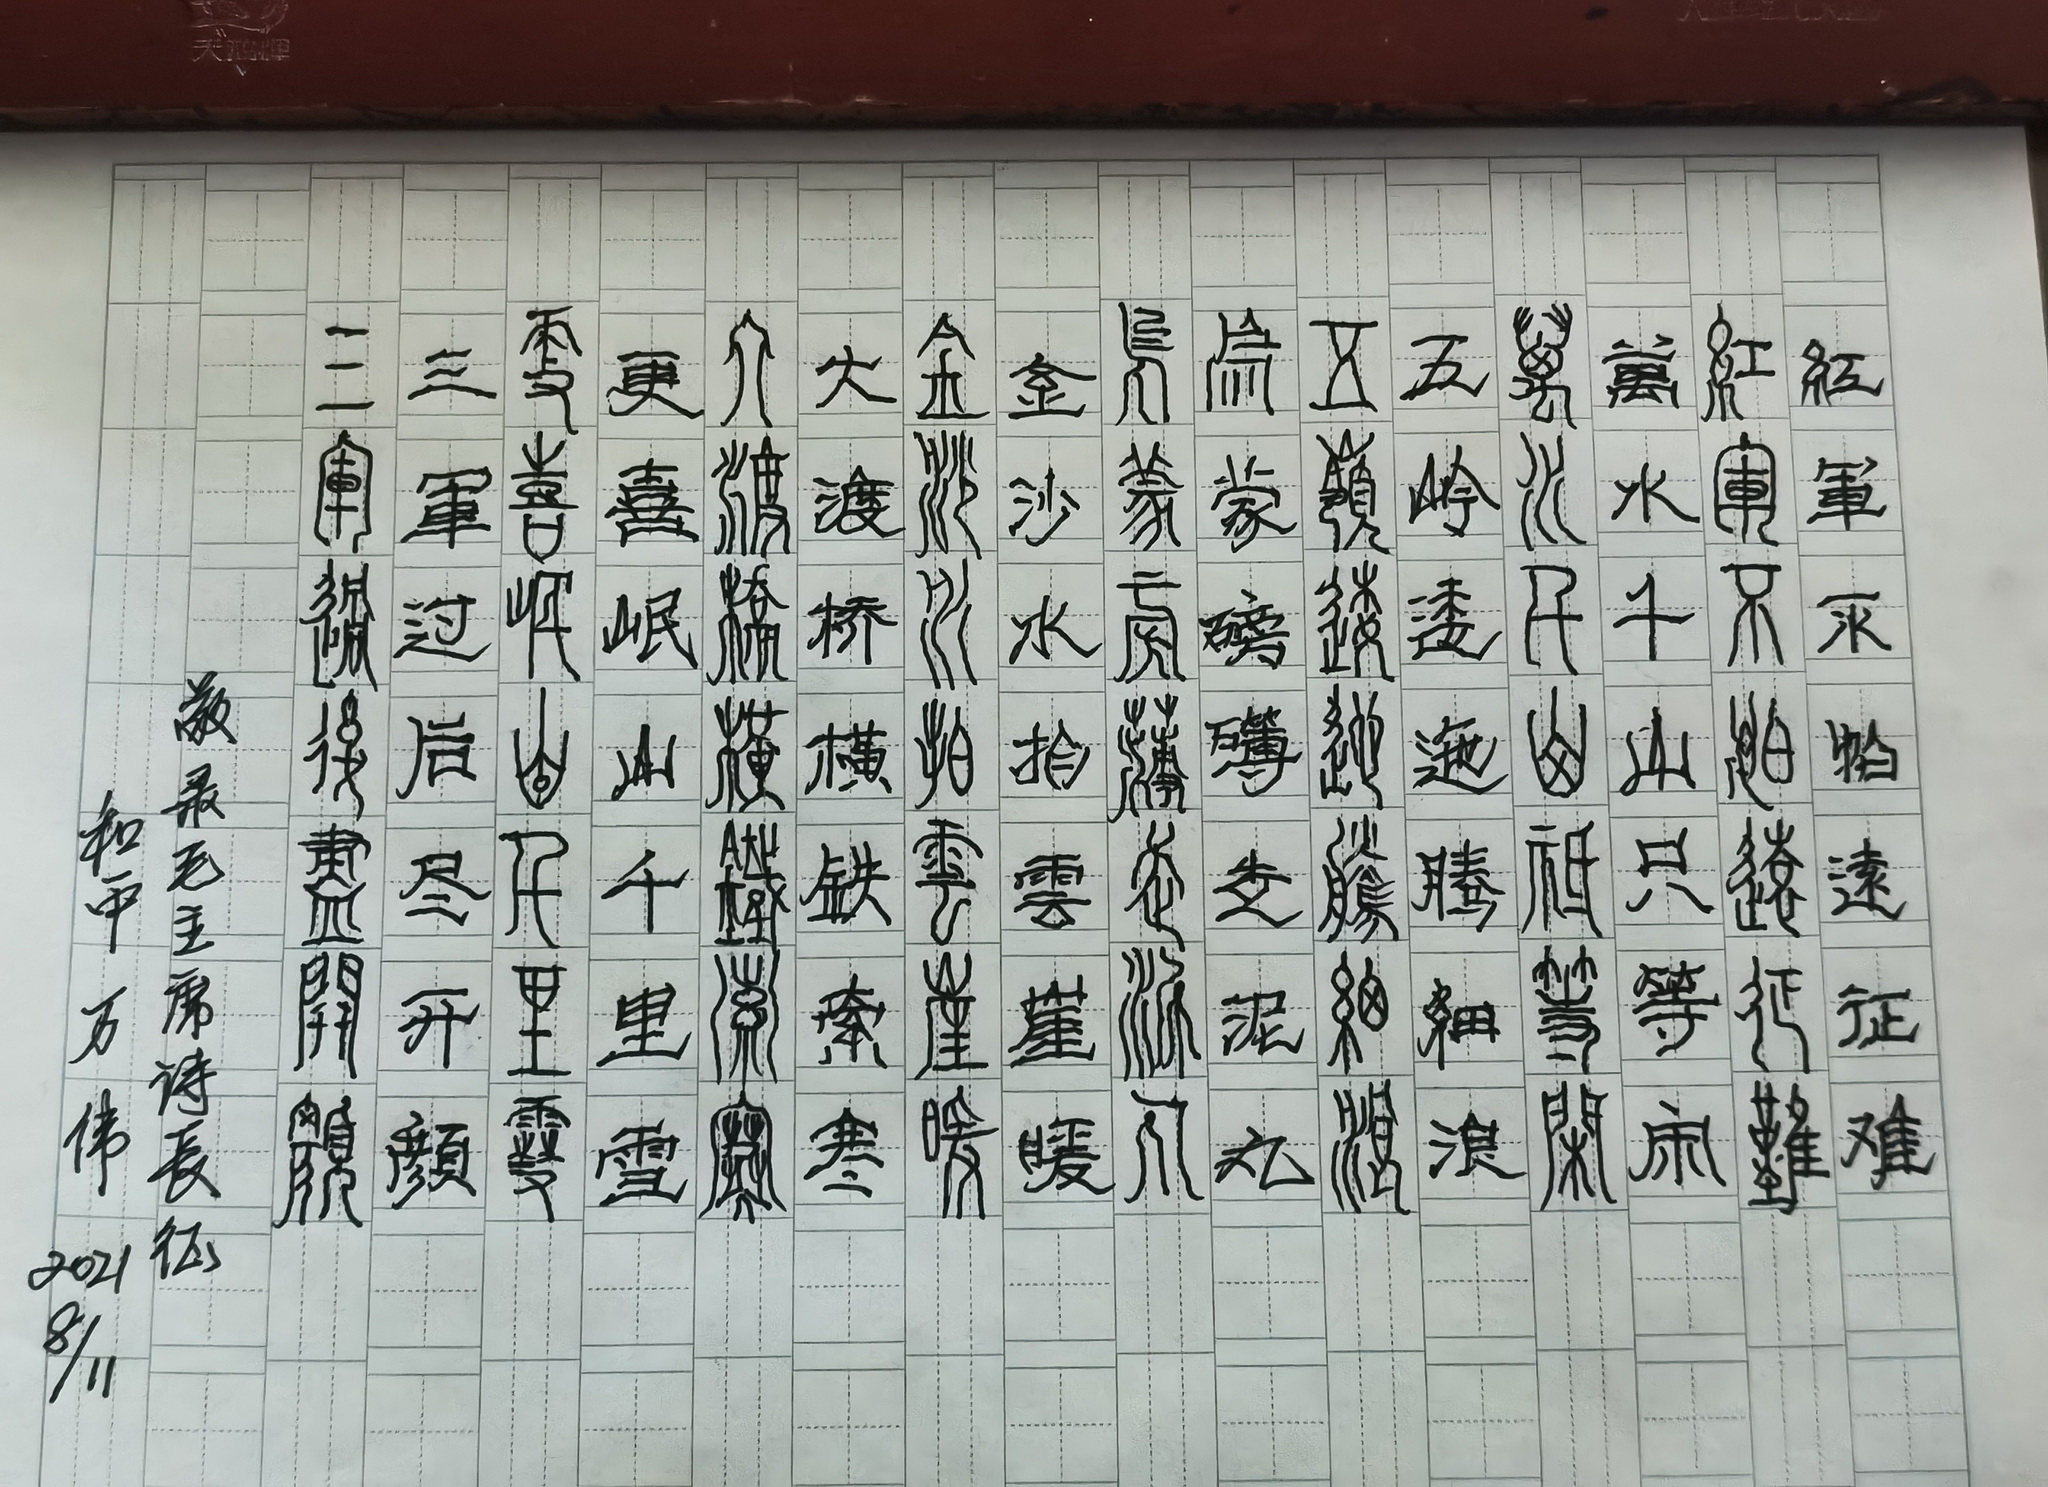 紅軍不怕遠征难
紅軍不怕遠征難
萬水千山只等闲
萬水千山祗等閑
五岭逶迤腾細浪
五嶺逶迤騰細浪
烏蒙磅礴走泥丸
烏蒙旁薄走泥丸
金沙水拍雲崖暖
金沙水拍雲崖暖
大渡桥横鉄索寒
大渡橋橫鐵索寒
更喜岷山千里雪
更喜岷山千里雪
三軍过后尽开顏
三軍過後盡開顏
敬录毛主席诗长征
和平 万伟 2021 8/11
天鹅牌